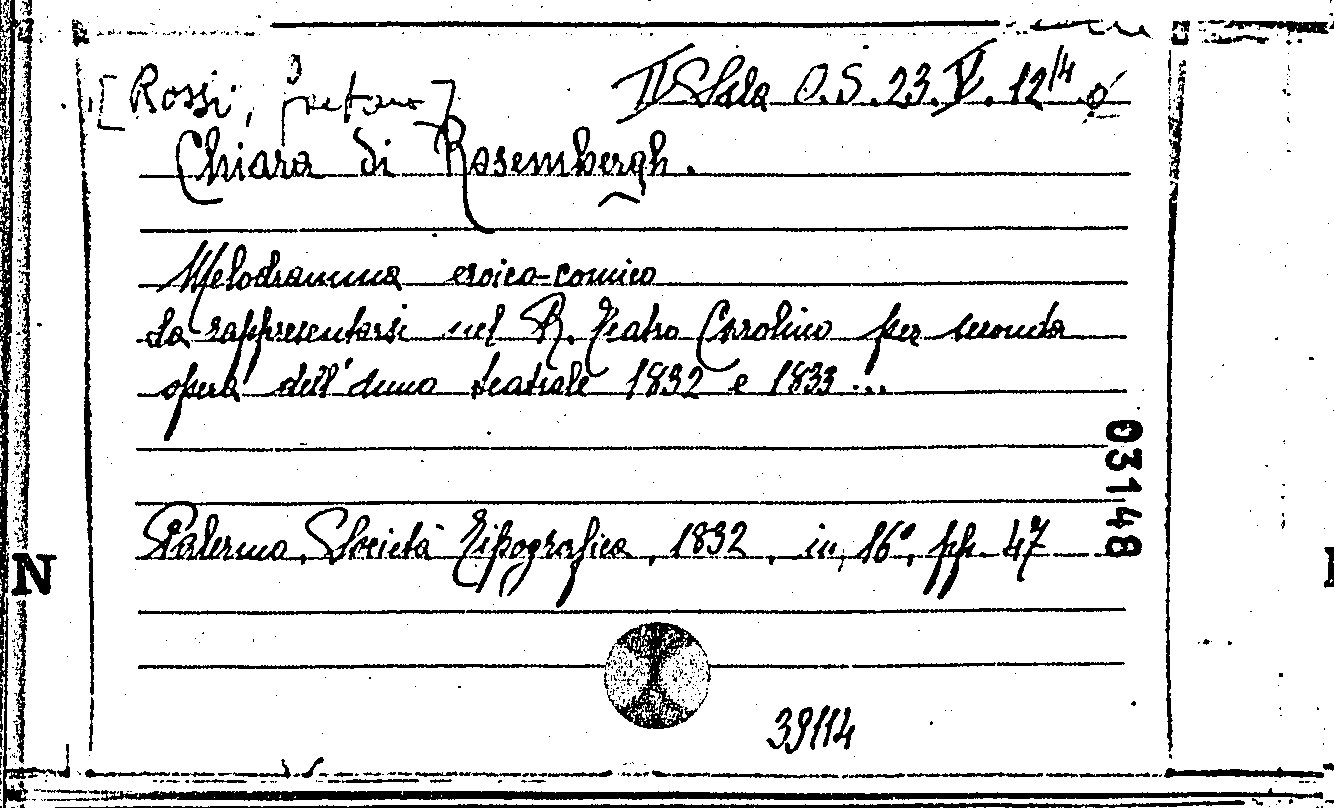 [Rossi, Gaetano]
II Sala O.S. 23. V. 12/4
Chiara di Rosembergh.
Melodramma eroico-comico
da rappresentarsi nel R. Teatro Carolino per seconda
opera dell'anno teatrale 1832 e 1833...
03148
Palermo, Società Tipografica, 1832, in 16°, pp. 47
N
39114